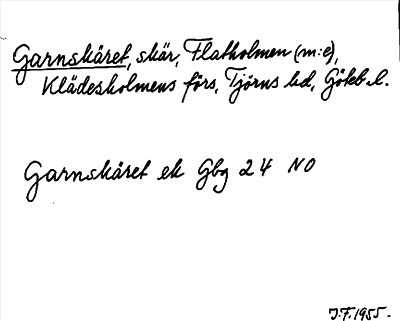 Garnskäret, skär, Flatholmen (m:e),
Klädesholmens förs, Tjörns hd, Göteb. l.
Garnskäret ek Gbg 24 NO
J.F. 1955.